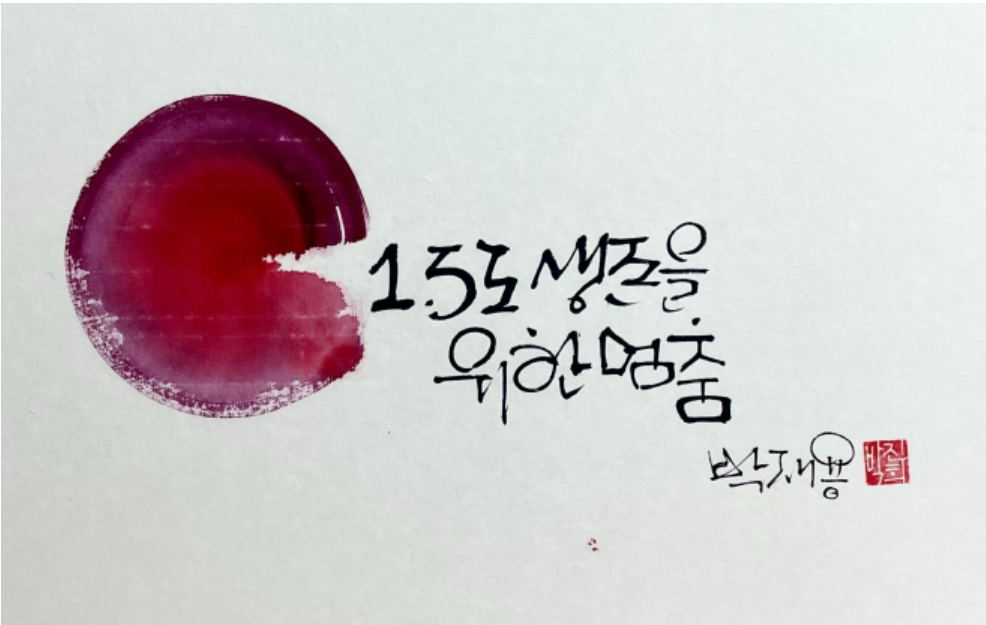 1.5도 생존을
위한 멈춤
박재용